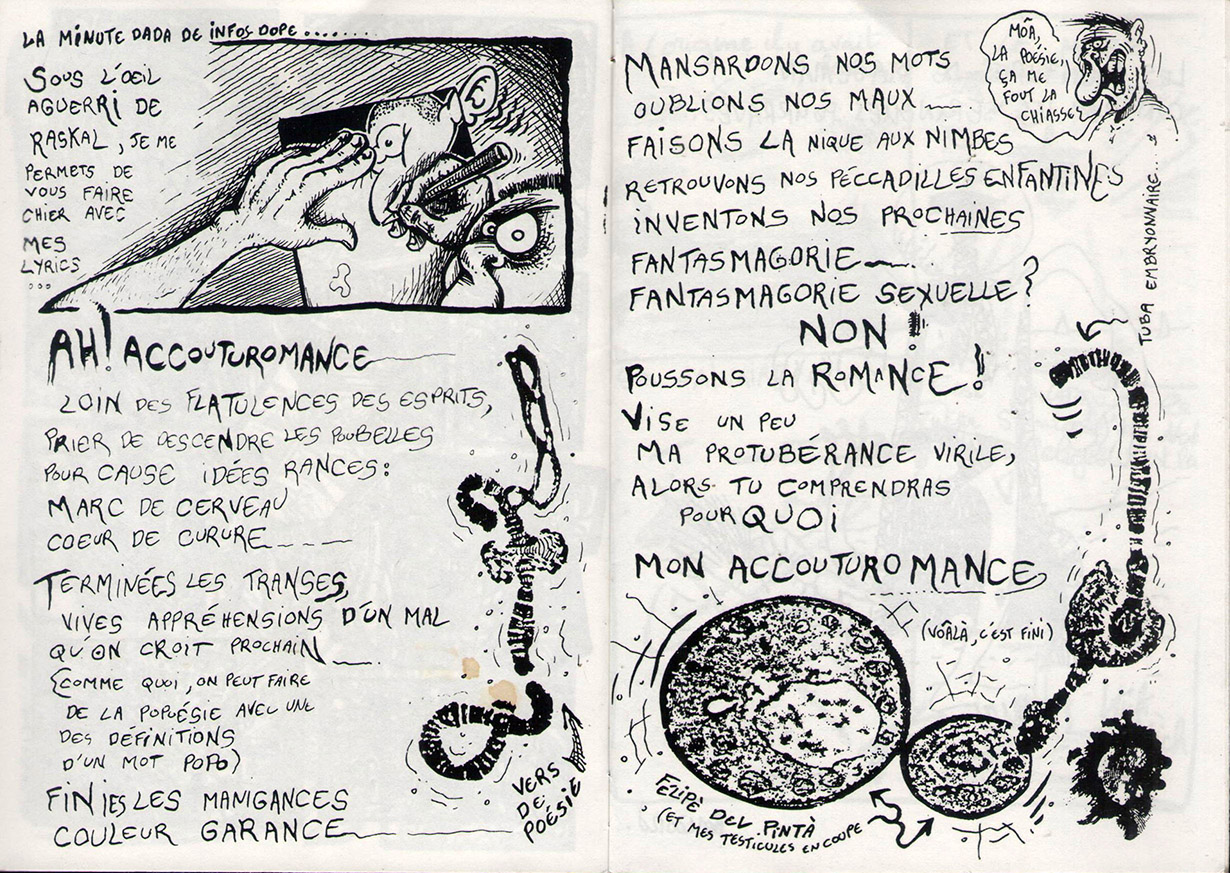 LA MINUTE DADA DE INFOS DOPE........
SOUS L'OEIL
AGUERRI DE
RASKAL, JE ME
PERMETS DE
VOUS FAIRE
CHIER AVEC
MES
LYRICS
...
AH! ACCOUTUROMANCE
LOIN DES FLATULENCES DES ESPRITS,
PRIER DE DESCENDRE LES POUBELLES
POUR CAUSE IDÉES RANCES:
MARC DE CERVEAU
COEUR DE CURURE____
TERMINÉES LES TRANSES,
VIVES APPRÉHENSIONS D'UN MAL
QU'ON CROIT PROCHAIN__
(COMME QUOI, ON PEUT FAIRE
DE LA POPUÉSIE AVEC UNE
DES DÉFINITIONS
D'UN MOT POPO)
FINIES LES MANIGANCES
COULEUR GARANCE
VERS
DE
POÉSIE
MÔÂ,
LA POÉSIE,
ÇA ME
FOUT LA
CHIASSE
MANSARDONS NOS MOTS
OUBLIONS NOS MAUX
FAISONS LA NIQUE AUX NIMBES
RETROUVONS NOS PECCADILLES ENFANTINES
INVENTONS NOS PROCHAINES
FANTASMAGORIE
FANTASMAGORIE SEXUELLE?
NON!
POUSSONS LA ROMANCE!
VISE UN PEU
MA PROTUBÉRANCE VIRILE,
ALORS TU COMPRENDRAS
POURQUOI
MON ACCOUTUROMANCE
(VOÂLÀ, C'EST FINI)
TUBA EMBRYONNAIRE...
FELIPÈ DEL PINTÀ
(ET MES TESTICULES EN COUPE